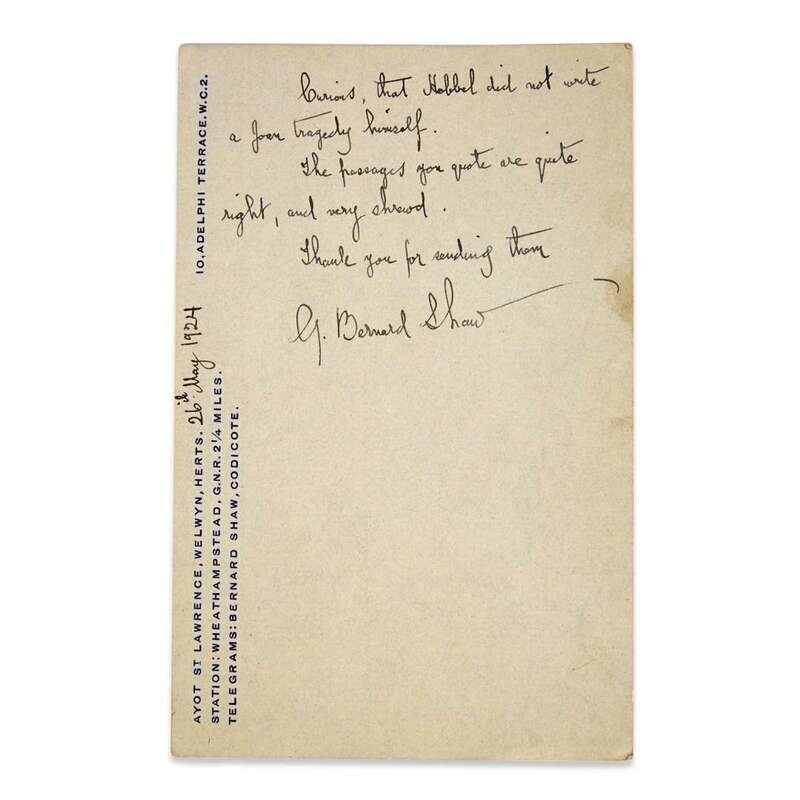 Curious, that Hebbel did not write
a Joan tragedy himself.
The passages you quote are quite
right, and very shrewd.
Thank you for sending them
G. Bernard Shaw
10, ADELPHI TERRACE, W.C.2.
AYOT ST LAWRENCE, WELWYN, HERTS. 26th May 1924
STATION: WHEATHAMPSTEAD, G.N.R. 2 1/4 MILES.
TELEGRAMS: BERNARD SHAW, CODICOTE.